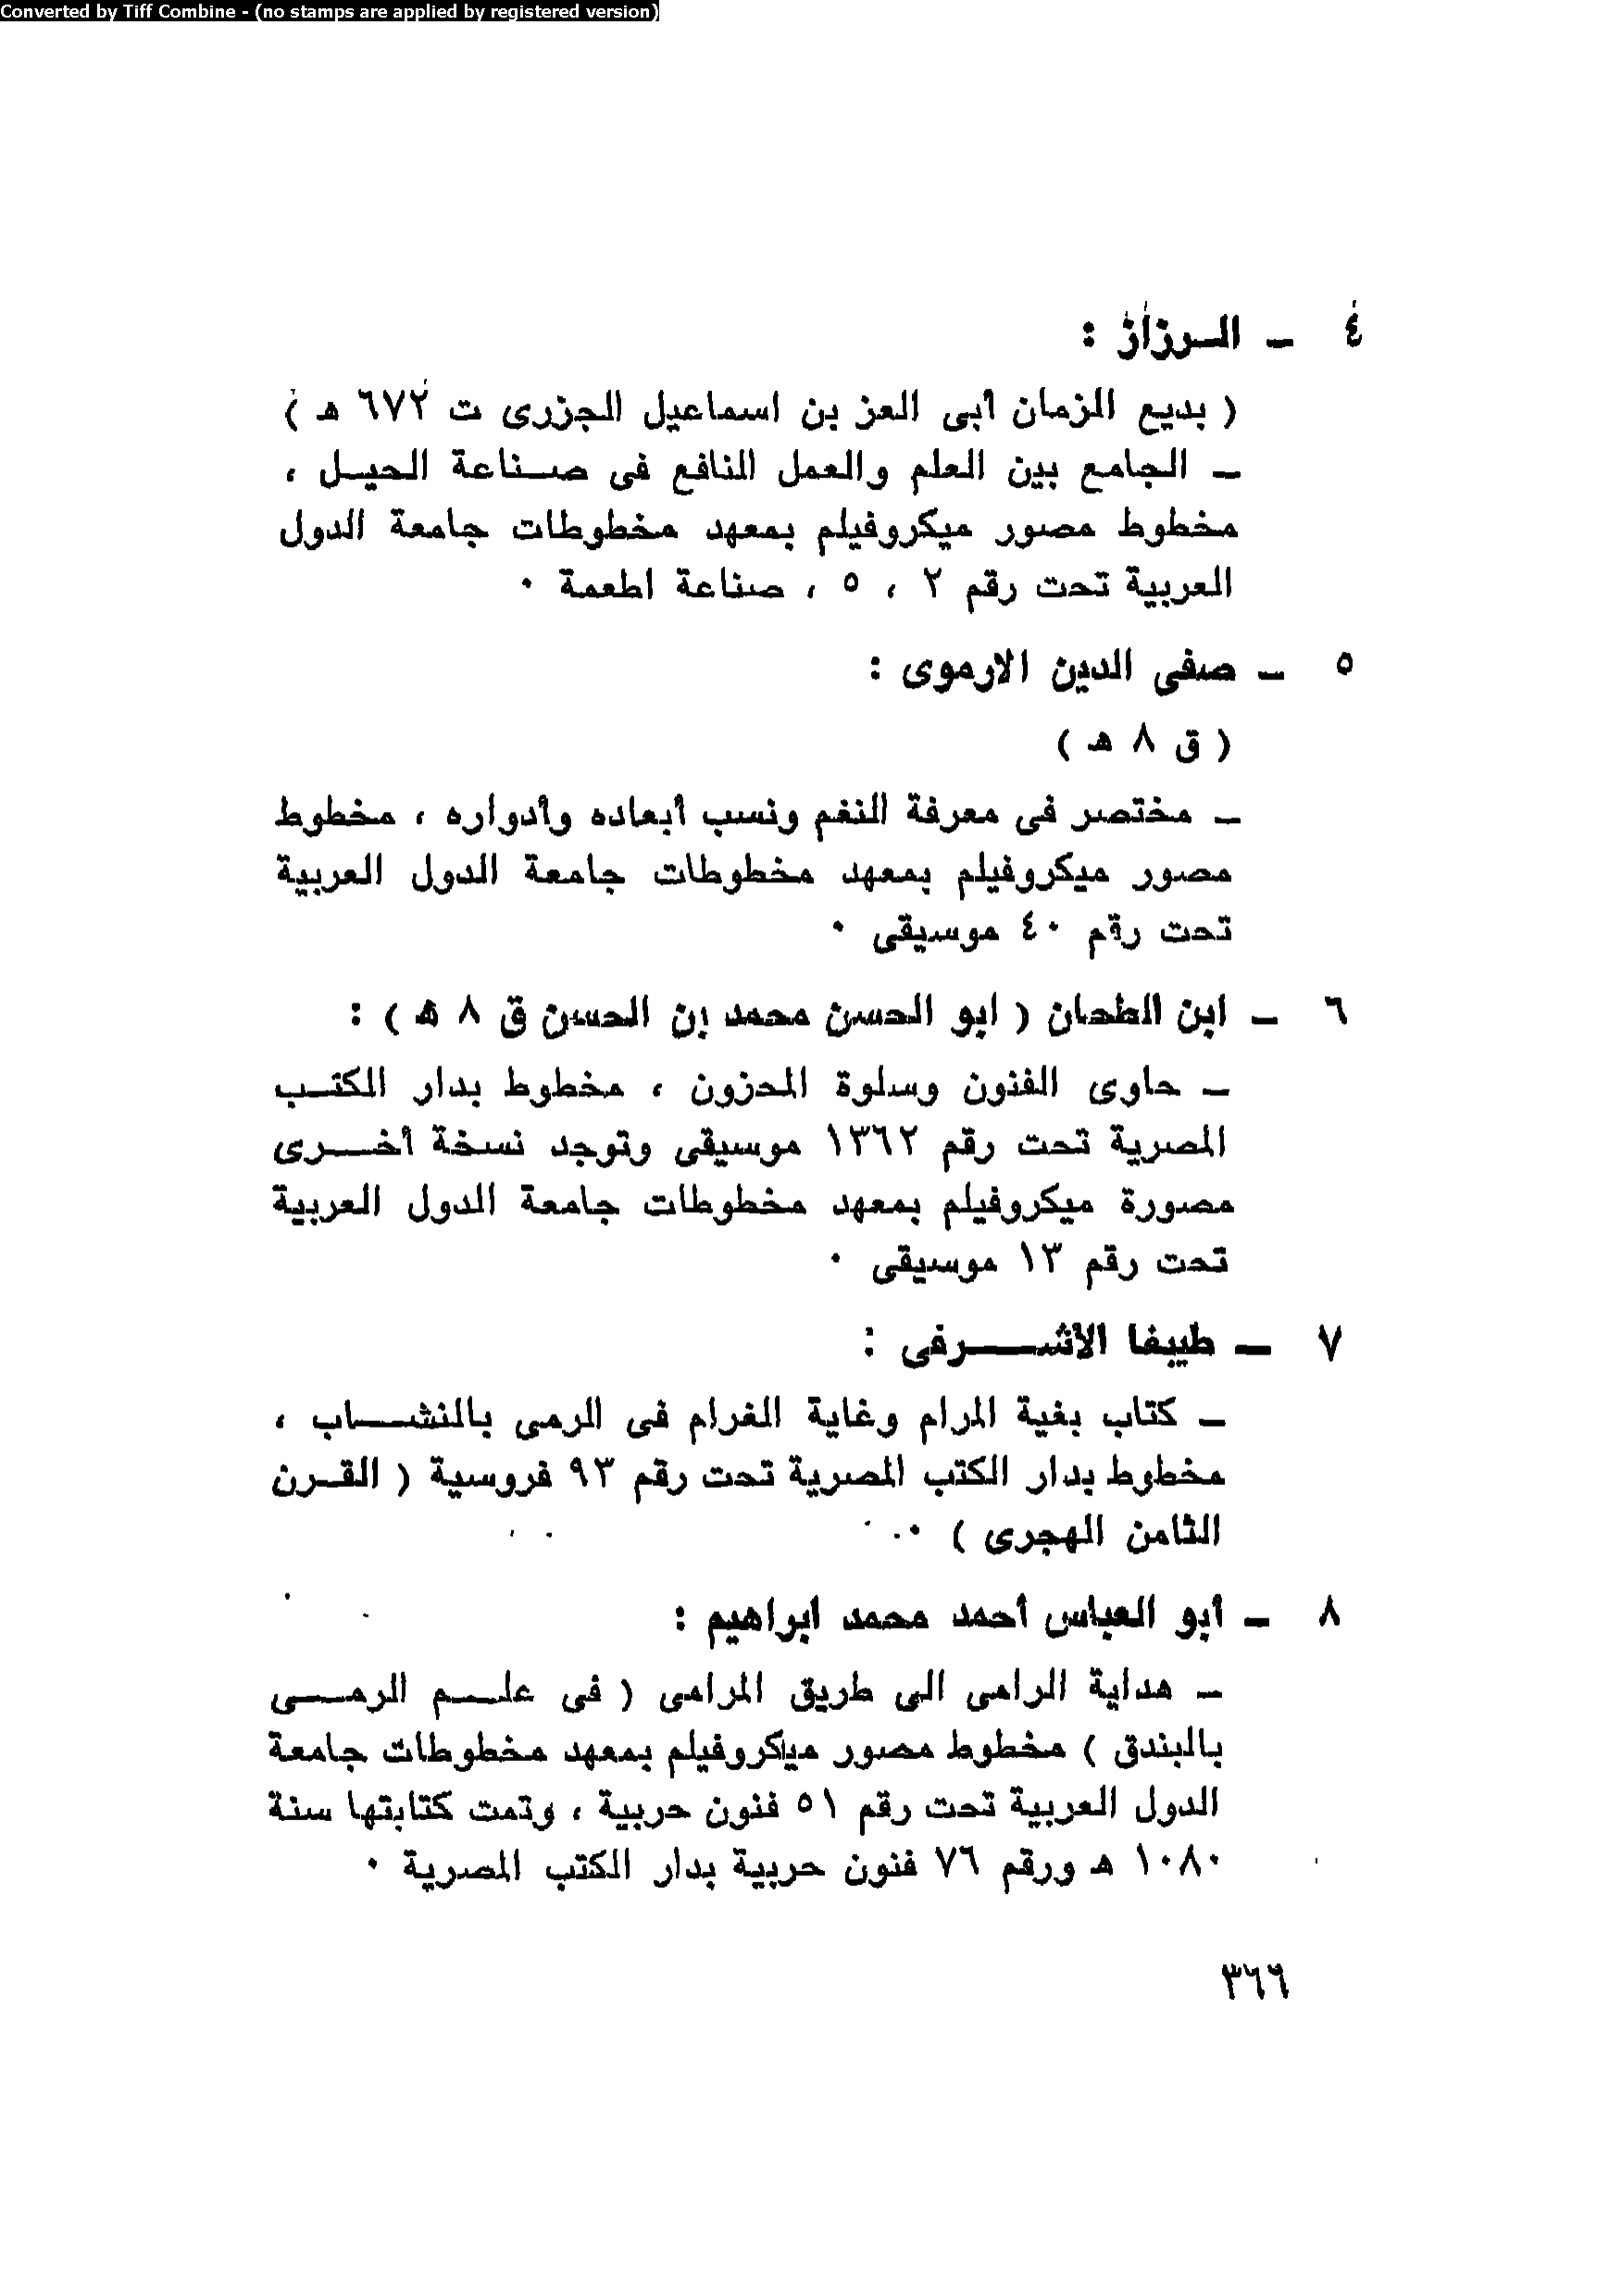 Converted by Tiff Combine - (no stamps are applied by registered version)
٤ ـ الـرزاز :
( بديع الزمان أبى العز بن اسماعيل الجزرى ت ٦٧٢ هـ )
ـ الجامع بين العلم والعمل النافع فى صناعة الحيل ،
مخطوط مصور ميكروفيلم بمعهد مخطوطات جامعة الدول
العربية تحت رقم ٢ ، ٥ ، صناعة اطعمة ٠
٥ ـ صفى الدين الارموى :
( ق ٨ هـ )
ـ مختصر فى معرفة النغم ونسب أبعاده وأدواره ، مخطوط
مصور ميكروفيلم بمعهد مخطوطات جامعة الدول العربية
تحت رقم ٤٠ موسيقى ٠
٦ ـ ابن الطحان ( ابو الحسن محمد بن الحسن ق ٨ هـ ) :
ـ حاوى الفنون وسلوة المحزون ، مخطوط بدار الكتب
المصرية تحت رقم ١٣٦٢ موسيقى وتوجد نسخة أخرى
مصورة ميكروفيلم بمعهد مخطوطات جامعة الدول العربية
تحت رقم ١٣ موسيقى ٠
٧ ـ طيبغا الأشرفى :
ـ كتاب بغية المرام وغاية الغرام فى الرمى بالنشاب ،
مخطوط بدار الكتب المصرية تحت رقم ٩٣ فروسية ( القرن
الثامن الهجرى ) ٠
٨ ـ أبو العباس أحمد محمد ابراهيم :
ـ هداية الرامى الى طريق المرامى ( فى علم الرمى
بالبندق ) مخطوط مصور ميكروفيلم بمعهد مخطوطات جامعة
الدول العربية تحت رقم ٥١ فنون حربية ، وتمت كتابتها سنة
١٠٨٠ هـ ورقم ٧٦ فنون حربية بدار الكتب المصرية ٠
٣٦٦